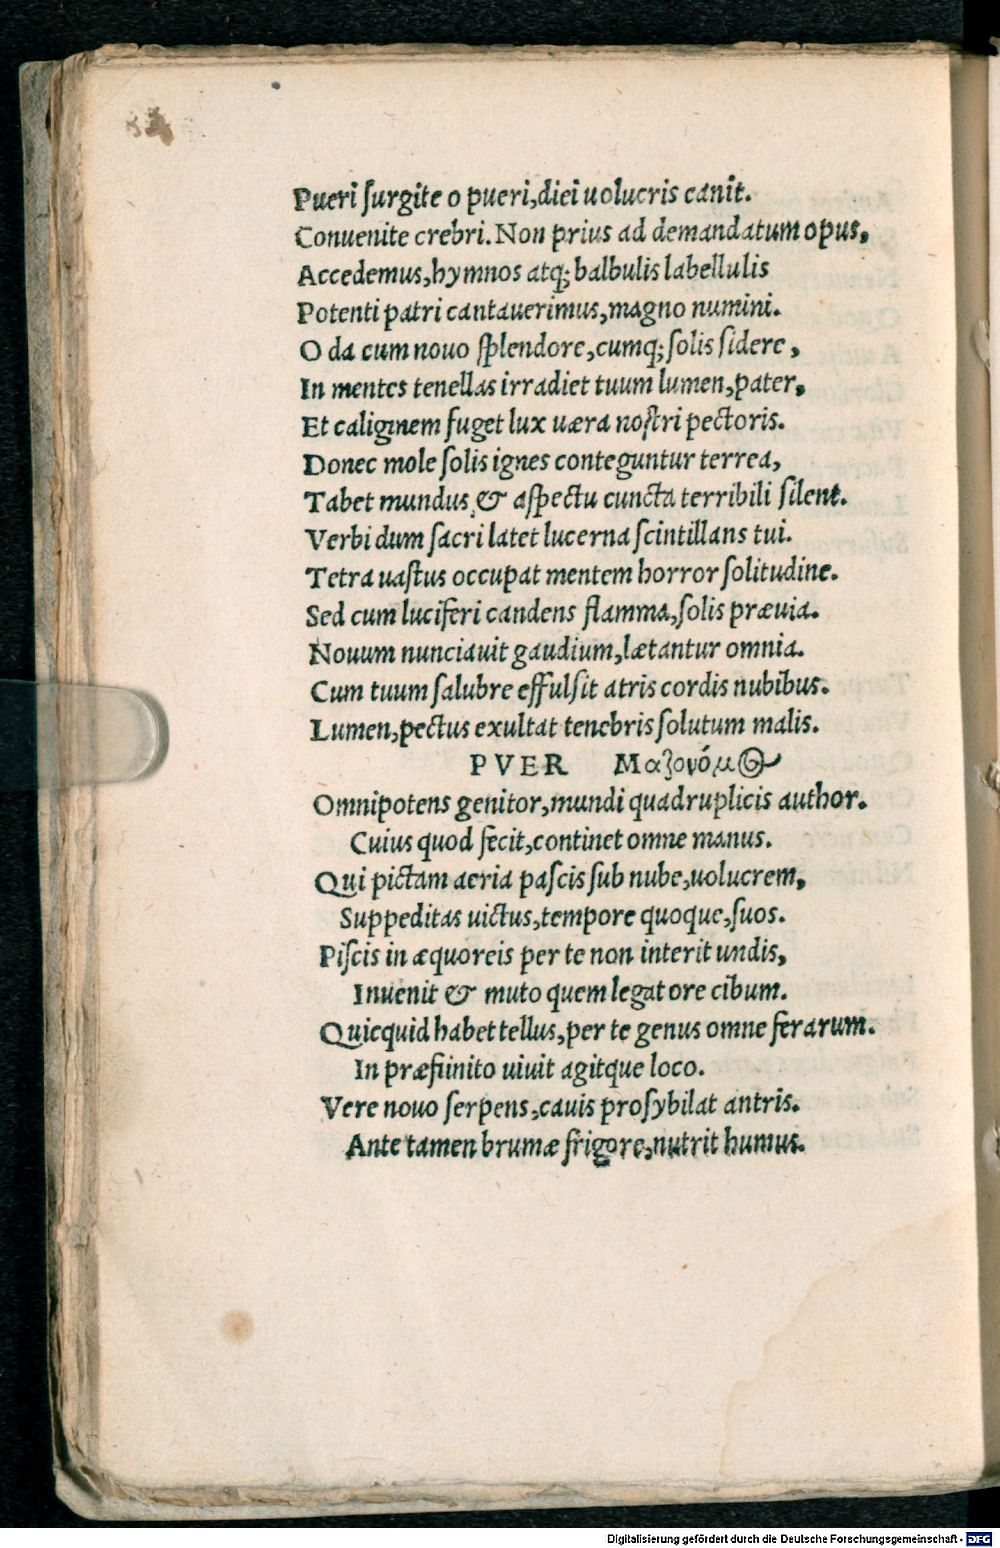 Pueri ſurgite o pueri,diei uolucris canit.
Conuenite crebri. Non prius ad demandatum opus,
Accedemus,hymnos atq; balbulis labellulis
Potenti patri cantauerimus,magno numini.
O da cum nouo ſplendore,cumq; ſolis ſidere,
In mentes tenellas irradiet tuum lumen,pater,
Et caliginem fuget lux uæra noſtri pectoris.
Donec mole ſolis ignes conteguntur terrea,
Tabet mundus,& aſpectu cuncta terribili ſilent.
Verbi dum ſacri latet lucerna ſcintillans tui.
Tetra uaſtus occupat mentem horror ſolitudine.
Sed cum luciferi candens flamma,ſolis præuia.
Nouum nunciauit gaudium,lætantur omnia.
Cum tuum ſalubre effulſit atris cordis nubibus.
Lumen,pectus exultat tenebris ſolutum malis.
PVER Μαζονόμος
Omnipotens genitor,mundi quadruplicis author.
Cuius quod fecit,continet omne manus.
Qui pictam aeria paſcis ſub nube,uolucrem,
Suppeditas uictus,tempore quoque,ſuos.
Piſcis in æquoreis per te non interit undis,
Inuenit & muto quem legat ore cibum.
Quicquid habet tellus,per te genus omne ferarum.
In præfinito uiuit agitque loco.
Vere nouo ſerpens,cauis proſybilat antris.
Ante tamen brumæ frigore,nutrit humus.
Digitalisierung gefördert durch die Deutsche Forschungsgemeinschaft - DFG